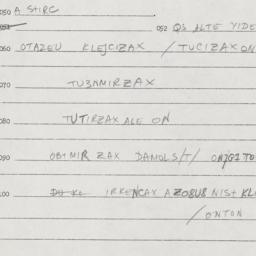 050 A STIRC
051 052 Q's ALTE YIDE
060 OTAZEU KLEJCIZAX / TUCIZAX ON
070 TUZNMIRZAX
080 TUTIRZAX ALE ON
090 OBIMIR ZAX DAMOLS/T/
100 IRKENCAX A ZOBUB NIST KL
/ONTON